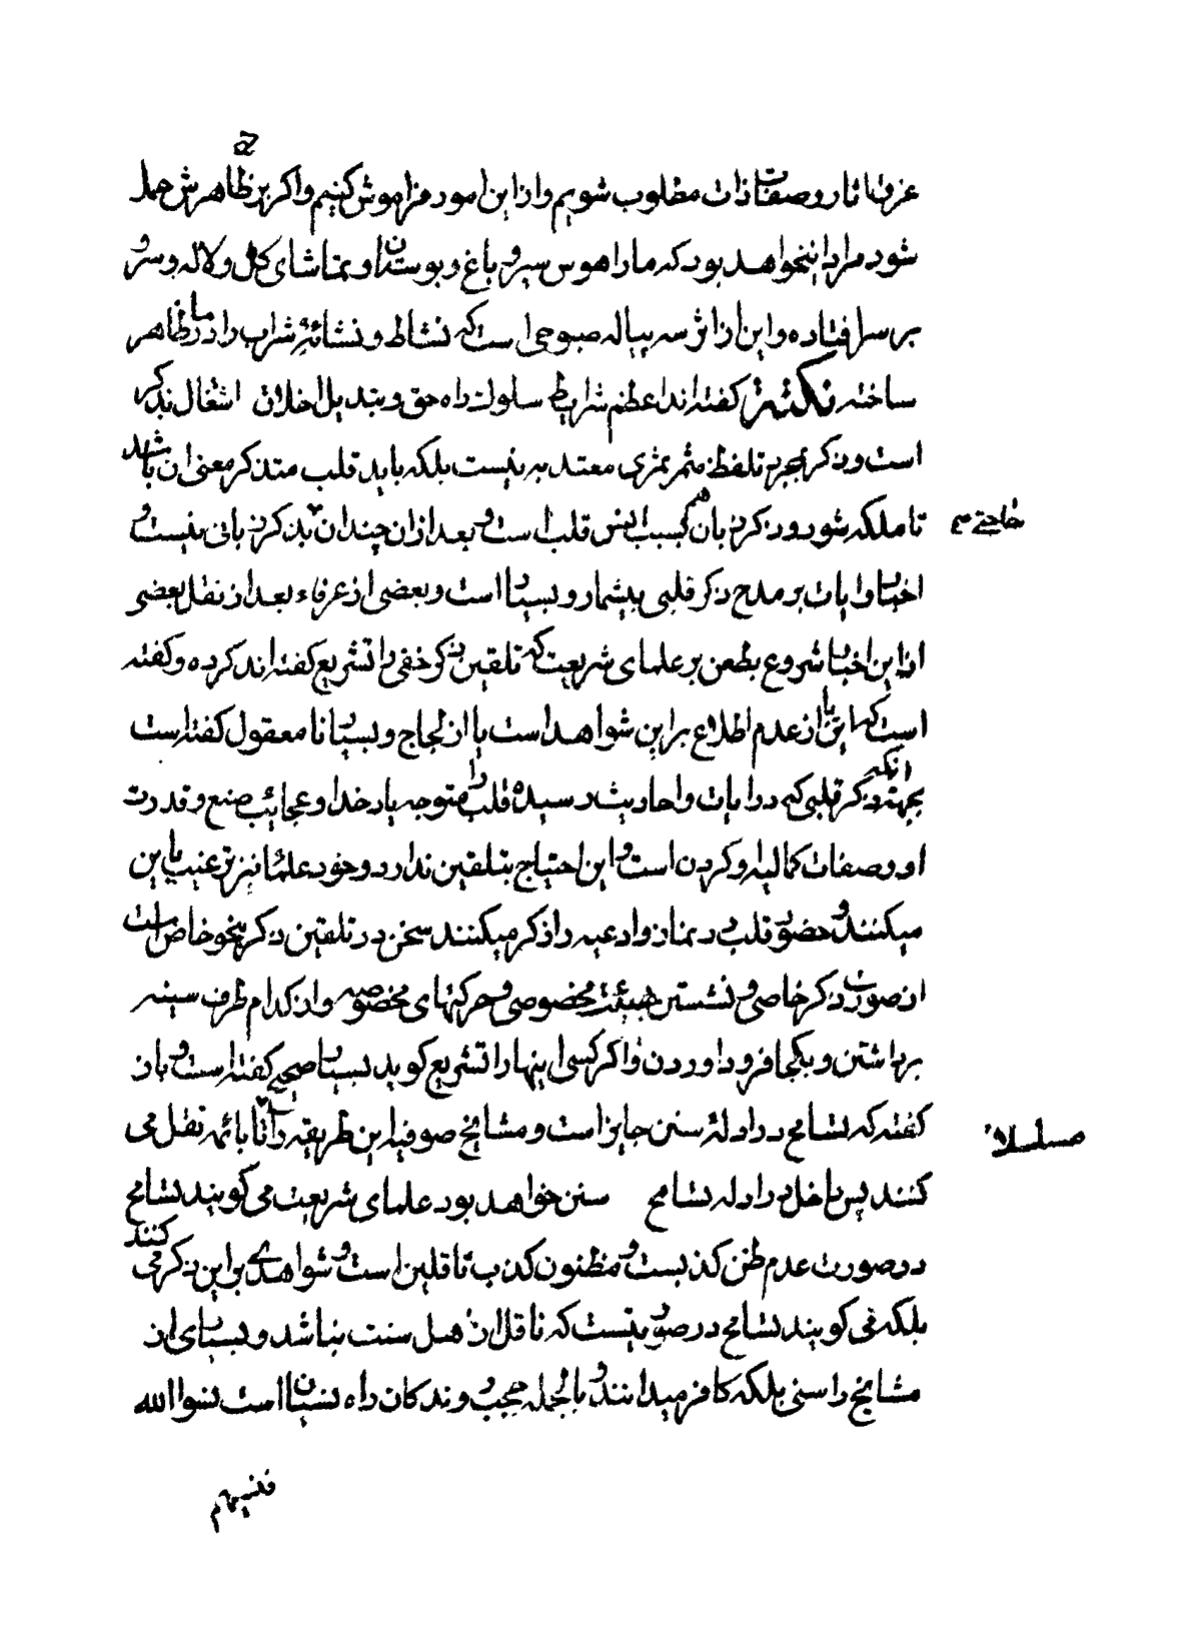 غرق اثار و صفات ذات مطلوب شویم و از این امور فراموش کنیم و اکر بر ظاهرش حمل
شود مراد این خواهد بود که ما را هوس سیر و باغ و بوستان و تماشای کل و لاله و سرو
بر سر افتاده و این از اثر سه پیاله صبوحی است که نشاط و نشائه شراب را در ما ظاهر
ساخته نکته کفته اند اعظم شرایط سلوک راه حق و تبدیل اخلاق اشتغال بذکر
است و ذکر بمجرد تلفظ مثمر ثمری معتد به نیست بلکه باید قلب متذکر معنی ان باشد
تا ملکه شود و ذکر زبان هم بسبب انس قلب است و بعد از ان چندان بذکر زبانی نیست و
حاجتی
اخبار و ایات بر مدح ذکر قلبی بیشمار و بسیار است و بعضی از عرفاء بعد از نقل بعضی
از این اخبار شروع بطعن بر علمای شریعت که تلقین ذکر خفی را تشریع کفته اند کرده و کفته
است که این یا از عدم اطلاع بر این شواهد است یا از لجاج و بسیار نا معقول کفته است
بجهة انکه ذکر قلبی که در ایات و احادیث رسیده قلب را متوجه یاد خدا و عجایب صنع و قدرت
او و صفات کمالیه او کردن است و این احتیاج بتلقین ندارد و خود علما نیز ترغیب باین
میکنند و حضور قلب در نماز و ادعیه را ذکر میکنند سخن در تلقین ذکر بنحو خاص است
از صورت ذکر خاصی و نشستن بهیئت مخصوصی و حرکتهای مخصوصه و از کدام طرف سینه
برداشتن و بکجا فرود اوردن و اکر کسی اینها را تشریع کوید بسیار صحیح کفته است و باز
کفته که تسامح در ادلۀ سنن جایز است و مشایخ صوفیه این طریقه را تا بائمه نقل می
مسلسلا
کنند پس داخل در ادله تسامح سنن خواهد بود علمای شریعت می کویند تسامح
در صورت عدم ظن کذبست و مظنون کذب ناقلین است و شواهدی بر این ذکر می کنند
بلکه می کویند تسامح در صورتیست که ناقل از اهل سنت نباشد و بسیاری از
مشایخ را سنی بلکه کافر میدانند و بالجمله روندکان راه نسیان است نسوا الله
فنسیهم